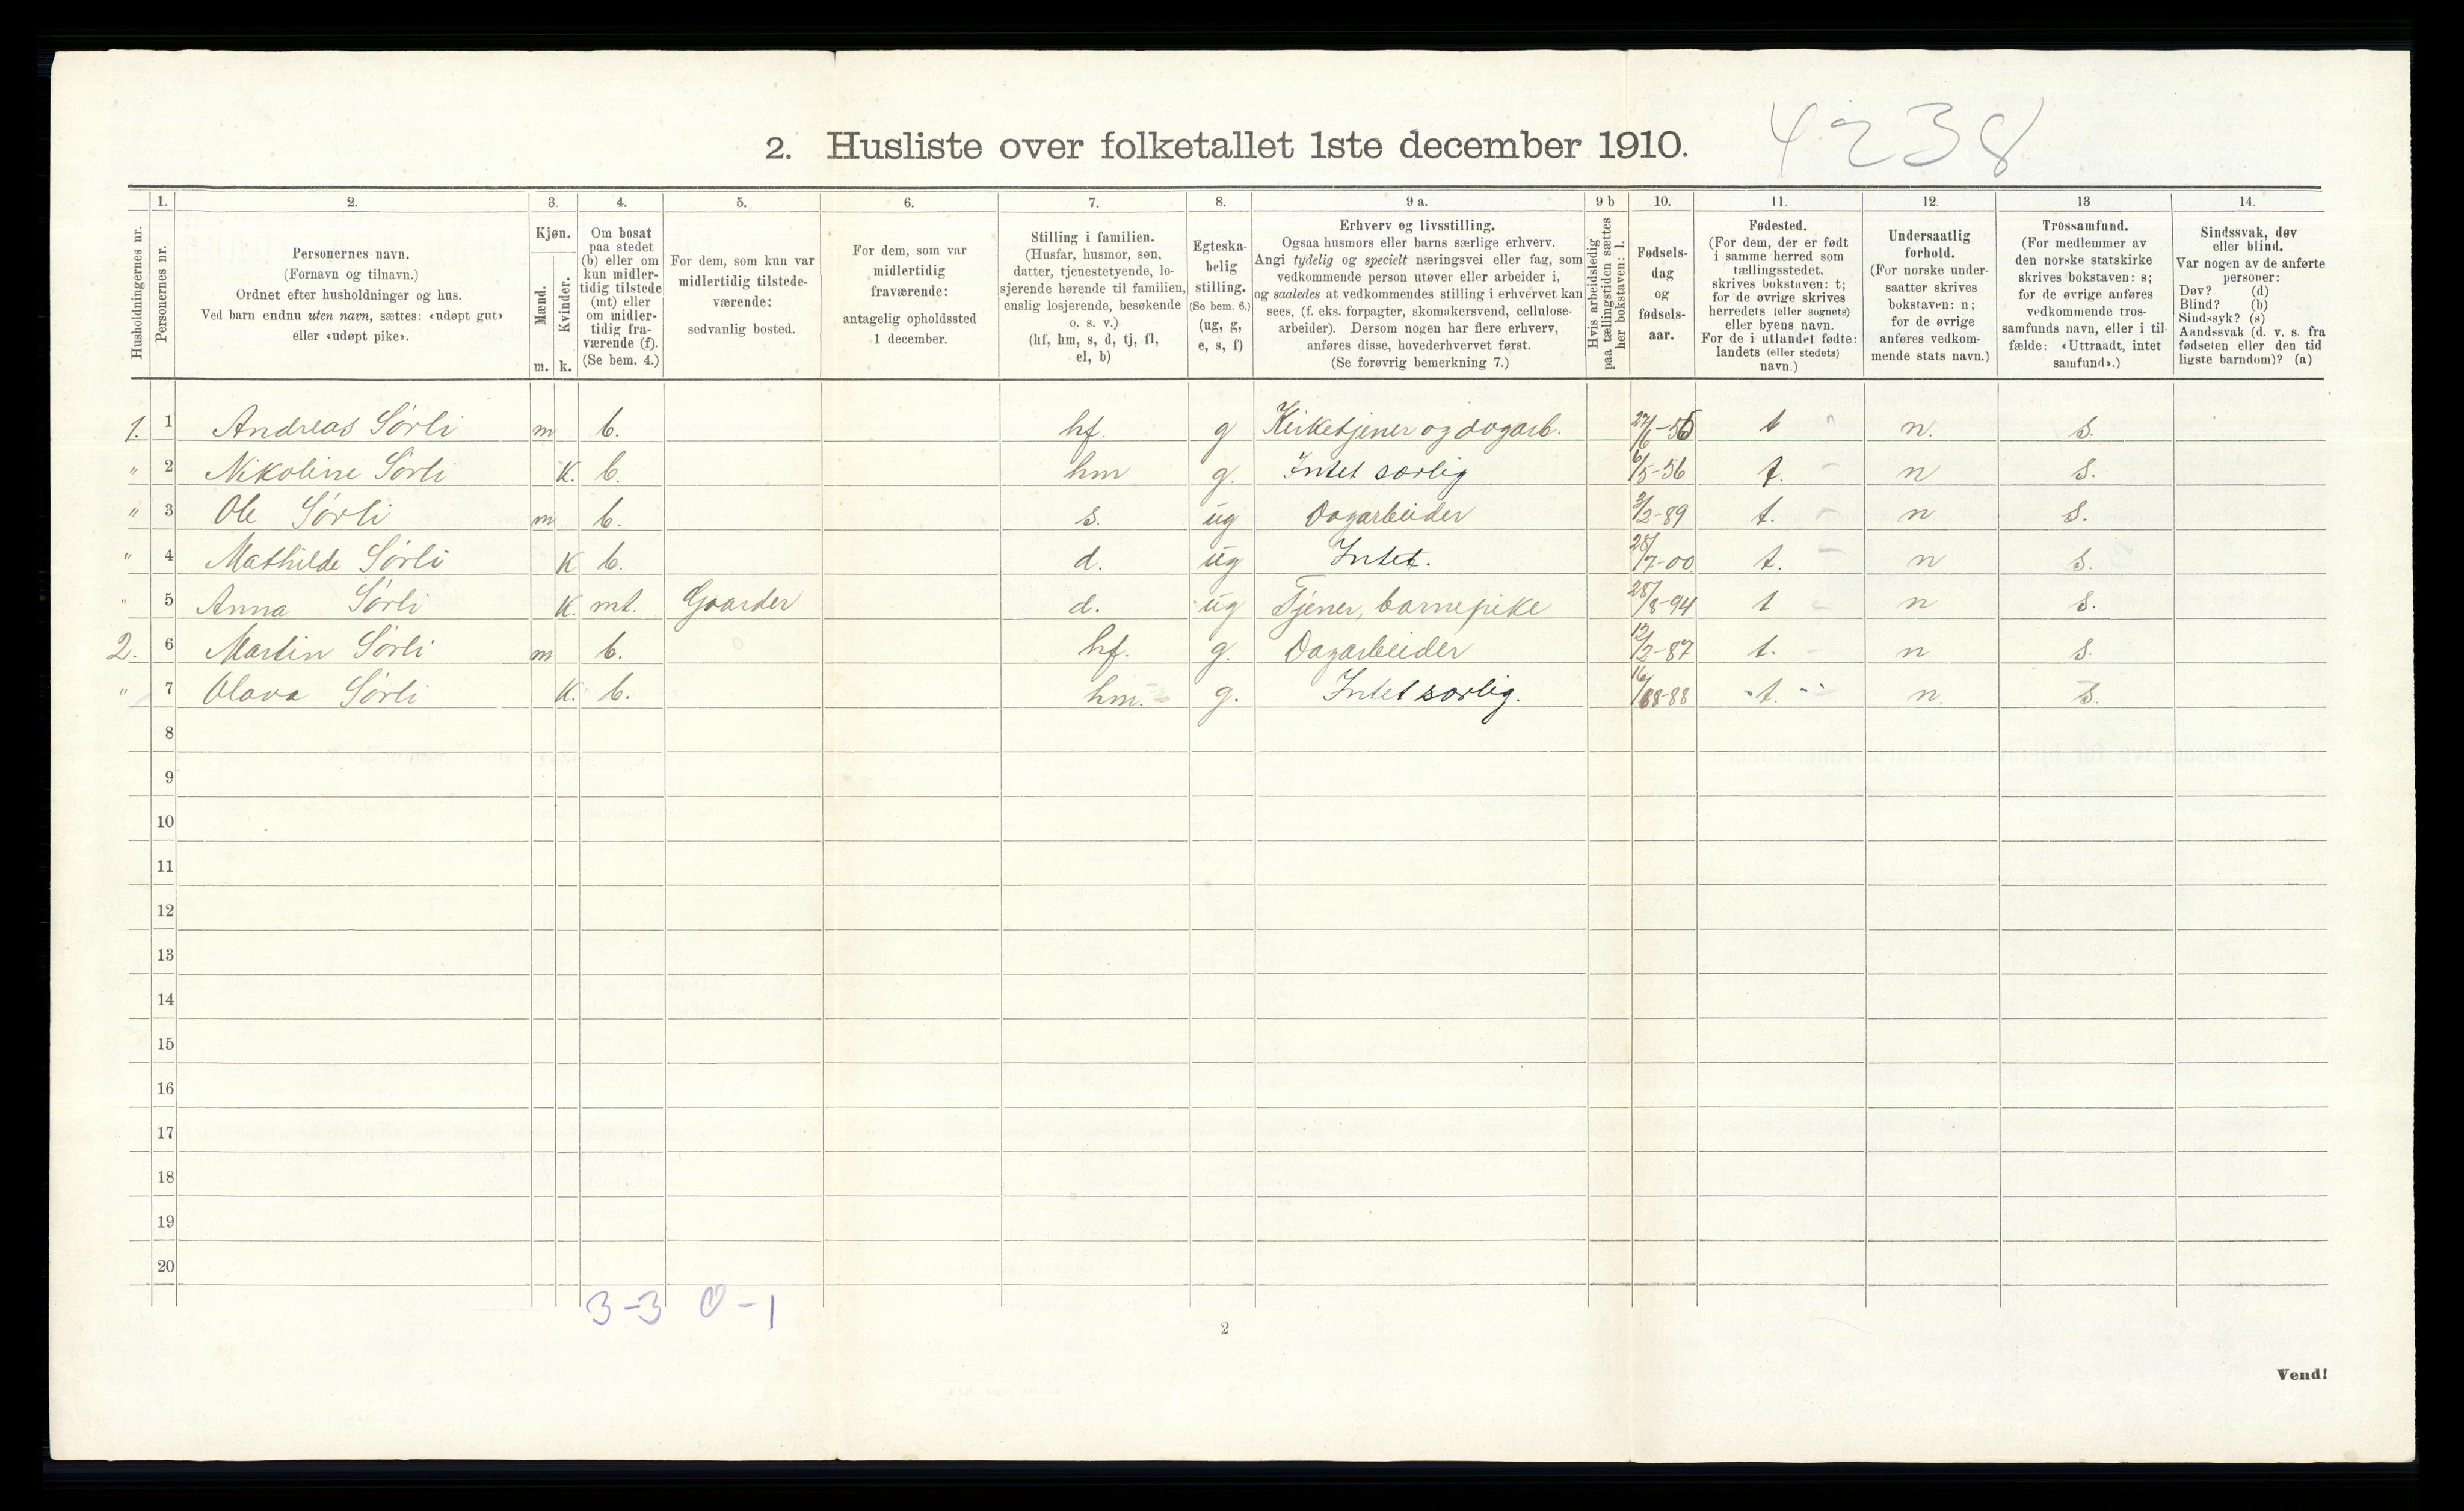 4238
2. Husliste over folketallet 1ste december 1910.
1. 2. 3. 4. 5. 6. 7. 8. 9 a. 9 b 10. 11. 12. 13 14.
Husholdningernes nr.
Personernes nr.
Personernes navn.
(Fornavn og tilnavn.)
Ordnet efter husholdninger og hus.
Ved barn endnu uten navn, sættes: «udøpt gut»
eller «udøpt pike».
Kjøn.
Mænd.
Kvinder.
m. k.
Om bosat
paa stedet
(b) eller om
kun midler-
tidig tilstede
(mt) eller
om midler-
tidig fra-
værende (f).
(Se bem. 4.)
For dem, som kun var
midlertidig tilstede-
værende:
sedvanlig bosted.
For dem, som var
midlertidig
fraværende:
antagelig opholdssted
1 december.
Stilling i familien.
(Husfar, husmor, søn,
datter, tjenestetyende, lo-
sjerende hørende til familien,
enslig losjerende, besøkende
o. s. v.)
(hf, hm, s, d, tj, fl,
el, b)
Egteska-
belig
stilling.
(Se bem. 6.)
(ug, g,
e, s, f)
Erhverv og livsstilling.
Ogsaa husmors eller barns særlige erhverv.
Angi tydelig og specielt næringsvei eller fag, som
vedkommende person utøver eller arbeider i,
og saaledes at vedkommendes stilling i erhvervet kan
sees, (f. eks. forpagter, skomakersvend, cellulose-
arbeider). Dersom nogen har flere erhverv,
anføres disse, hovederhvervet først.
(Se forøvrig bemerkning 7.)
Hvis arbeidsledig
paa tællingstiden sættes
her bokstaven: l.
Fødsels-
dag
og
fødsels-
aar.
Fødested.
(For dem, der er født
i samme herred som
tællingsstedet,
skrives bokstaven: t;
for de øvrige skrives
herredets (eller sognets)
eller byens navn.
For de i utlandet fødte:
landets (eller stedets)
navn.)
Undersaatlig
forhold.
(For norske under-
saatter skrives
bokstaven: n;
for de øvrige
anføres vedkom-
mende stats navn.)
Trossamfund.
(For medlemmer av
den norske statskirke
skrives bokstaven: s;
for de øvrige anføres
vedkommende tros-
samfunds navn, eller i til-
fælde: «Uttraadt, intet
samfund».)
Sindssvak, døv
eller blind.
Var nogen av de anførte
personer:
Døv? (d)
Blind? (b)
Sindssyk? (s)
Aandssvak (d. v. s. fra
fødselen eller den tid
ligste barndom)? (a)
1. 1 Andreas Sørli m b. hf. g Kirketjener og dagarb. t n. s.
" 2 Nikoline Sørli K. b. hm g. Intet særlig 6/5-56 t. n s.
" 3 Ole Sørli m b. s. ug Dagarbeider 3/2-89 t. n s.
" 4 Mathilde Sørli K b. d. ug Intet. 28/7-00 t. n s.
" 5 Anna Sørli K. mt. Gaarder d. ug Tjener, barnepike 28/8-94 t n s.
2. 6 Martin Sørli m b. hf. g. Dagarbeider 12/2-87 t. n s.
" 7 Olava Sørli K. b. hm. g. Intet særlig. t. n. s.
8
9
10
11
12
13
14
15
16
17
18
19
20
3-3 0-1
2
Vend!